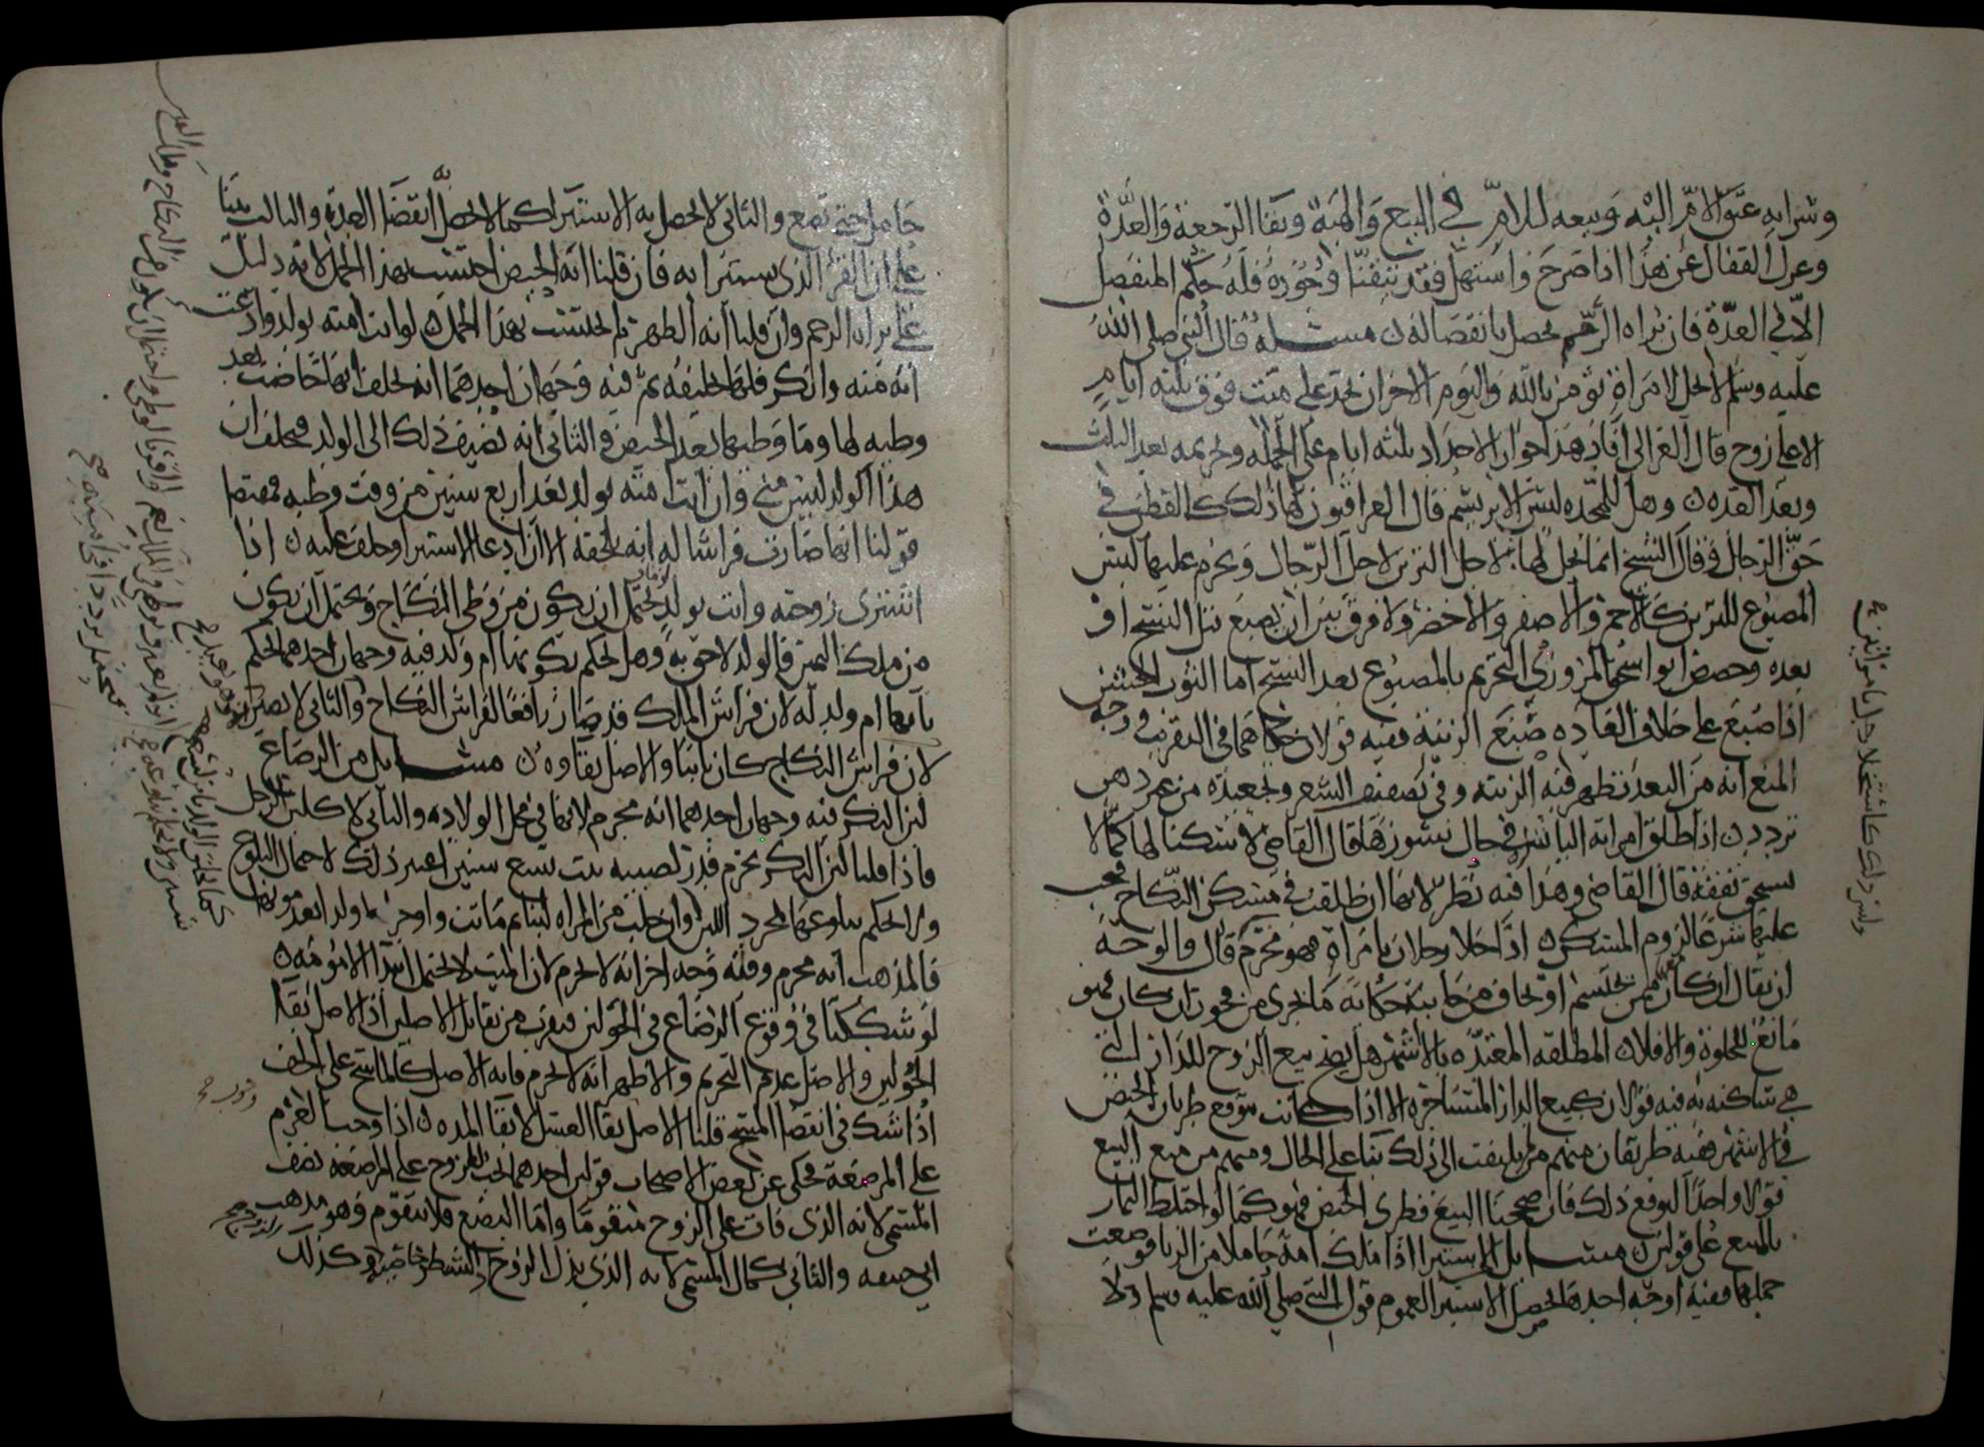 وشرايه عتق الام اليه وبيعه للام في البيع والهبة وبقا الرجعة والعدة
وعن القفال عن هذا اذا صرخ واستهل فقد تيقنا وجوده فله حكم المنفصل
الا في العدة فان براه الرحم تحصل بانفصاله مسلة قال النبي صلى الله
عليه وسلم لا يحل لامراة تومن بالله واليوم الاخر ان تحد على ميت فوق ثلثه ايام
الا على زوج قال الغزالي افاد هذا جواز الاحداد ثلثه ايام على الجمله وتحريمه بعد الثلث
وبعد العده وهل للمحده لبس الابريسم قال العراقيون لها ذلك كالقطن في
حق الرجال وقال الشيخ انما يحل لها لاجل التزين لاجل الرجال ويحرم عليها لبس
المصبوغ للتزين كالاحمر والاصفر والاخضر ولا فرق بين ان يصبغ قبل النسج او
بعده وخصص ابو اسحق المروزي التحريم بالمصبوغ بعد النسج اما الثوب الخشن
اذا صبغ على خلاف العاده صبغ الزينة ففيه قولان حكاهما في التقريب ووجه
المنع انه من البعد تظهر فيه الزينه وفي تصفيف الشعر وتجعيده من غير دهن
تردد اذا طلق امراته الباين في حال نشوزها قال القاضي لا سكنا لها كما لا
تستحق نفقة قال القاضي وهذا فيه نظر لانها ان طلقت في مسكن النكاح فيجب
عليها شرعا لزوم المسكن اذا خلا رجلان بامراة فهو محرم قال والوجه
ان يقال ان كان ممن يحتشم او يخاف من جانبه حكاية ما يجري من فجور ان كان فهو
مانع للخلوة والا فلا المطلقه المعتده بالاشهر هل يصح بيع الزوج للدار التي
هي ساكنه فيه قولان كبيع الدار المستاجره الا اذا كانت تتوقع طريان الحيض
في الاشهر ففيه طريقان منهم من لم يلتفت الى ذلك بنا على الحال ومنهم من منع البيع
قولا واحدا لتوقع ذلك فان صححنا البيع فطرى الحيض فهو كما لو اختلط الثمار
بالمبيع على قولين مسايل الاستبرا اذا ملك امة حاملا من الزنا فوضعت
حملها ففيه اوجه احدها يحصل الاستبرا لعموم قول النبي صلى الله عليه وسلم ولا
حامل حتى تضع والثاني لا يحصل به الاستبرا كما لا يحصل به انقضا العدة والثالث بينا
على ان القرء الذي يستبرا به فان قلنا انه الحيض احتسب بهذا الحمل لانه دليل
على براه الرحم وان قلنا انه الطهر لم تحتسب بهذا الحمل لو اتت امته بولد وادعت
انه منه وانكر فلها تحليفه ثم فيه وجهان احدهما انه يحلف انها حاضت بعد
وطيه لها وما وطيها بعد الحيض والثاني انه يضيف ذلك الى الولد فيحلف ان
هذا الولد ليس مني وان اتت امته بولد بعد اربع سنين من وقت وطيه فمقتضا
قولنا انها صارت فراشا له انه يلحقه الا ان ادعا الاستبرا وحلف عليه اذا
اشترى زوجته واتت بولد يحتمل ان يكون من وطي النكاح ويحتمل ان يكون
من ملك اليمين فالولد لاحق به وهل يحكم بكونها ام ولد فيه وجهان احدهما يحكم
بانها ام ولد له لان فراش الملك قد صار رافعا لفراش النكاح والثاني لا تصير
لان فراش النكاح كان ثابتا والاصل بقاوه مسايل من الرضاع
لبن البكر فيه وجهان احدهما انه محرم لانها في محل الولاده والثاني لا كلبن الرجل
فاذا قلنا لبن البكر يحرم فدر لصبيه بنت تسع سنين اعتبر ذلك لاحتمال البلوغ
ولا نحكم ببلوغها لمجرد اللبن وان حلب من المراه لبنا ثم ماتت واوجر ولدا بعد موتها
فالمذهب انه محرم وفيه وجه اخر انه لا يحرم لان الميت لا يحتمل ابتدا الامومه
لو شككنا في وقوع الرضاع في الحولين فيقرب من تقابل الاصلين اذ الاصل بقا
الحولين والاصل عدم التحريم والاظهر انه لا يحرم فانه الاصل كالماسح على الخف
اذا شك في انقضا المسح قلنا الاصل بقا الغسل لا بقا المده اذا وجب الغرم
على المرضعة فحكى عن بعض الاصحاب قولين احدهما يجب للزوج على المرضعه نصف
المسمى لانه الذي فات على الزوج متقوما واما البضع فلا يتقوم وهو مذهب
ابي حنيفه والثاني بكمال المسمى لانه الذي بذل الزوج والشطر خاصيته كذلك